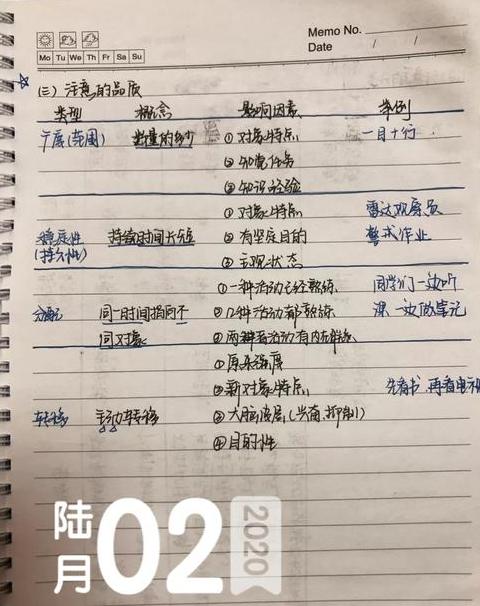 Memo No.
Mo Tu We Th Fr Sa Su
Date / /
(三) 注意的品质
类型 概念 影响因素 举例
广度(范围) 数量的多少 ①对象特点 一目十行.
②知觉任务
③知识经验
①对象特点 雷达观察员
稳定性 持续时间长短 ②有坚定目的 警戒作业
(持久性) ③主观状态
①一种活动已经熟练 同学们一边听
分配 同一时间指向不 ②几种活动都熟练 课一边做笔记
同对象 ③两种活动有内在联系
①原来强度
②新对象特点 先看书,再看电视
转移 主动转移 ③大脑皮层(兴奋.抑制)
④目的性
陆月02 2020